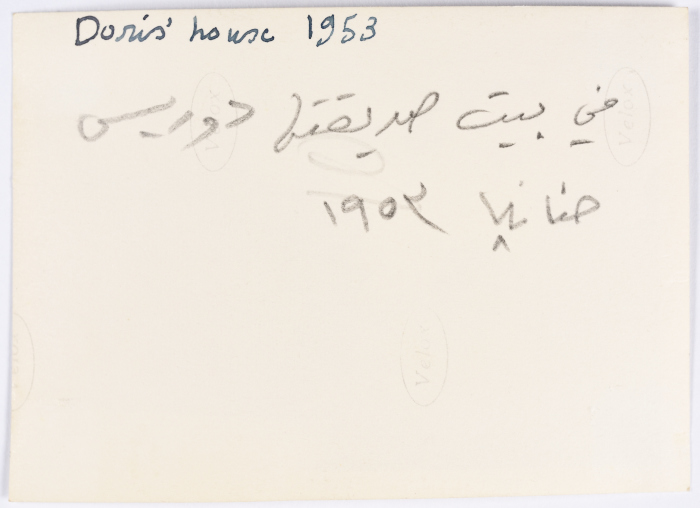 Doris' house 1953
في بيت صديقتها دوريس
حنانيا ١٩٥٣
Velox
Velox
Velox